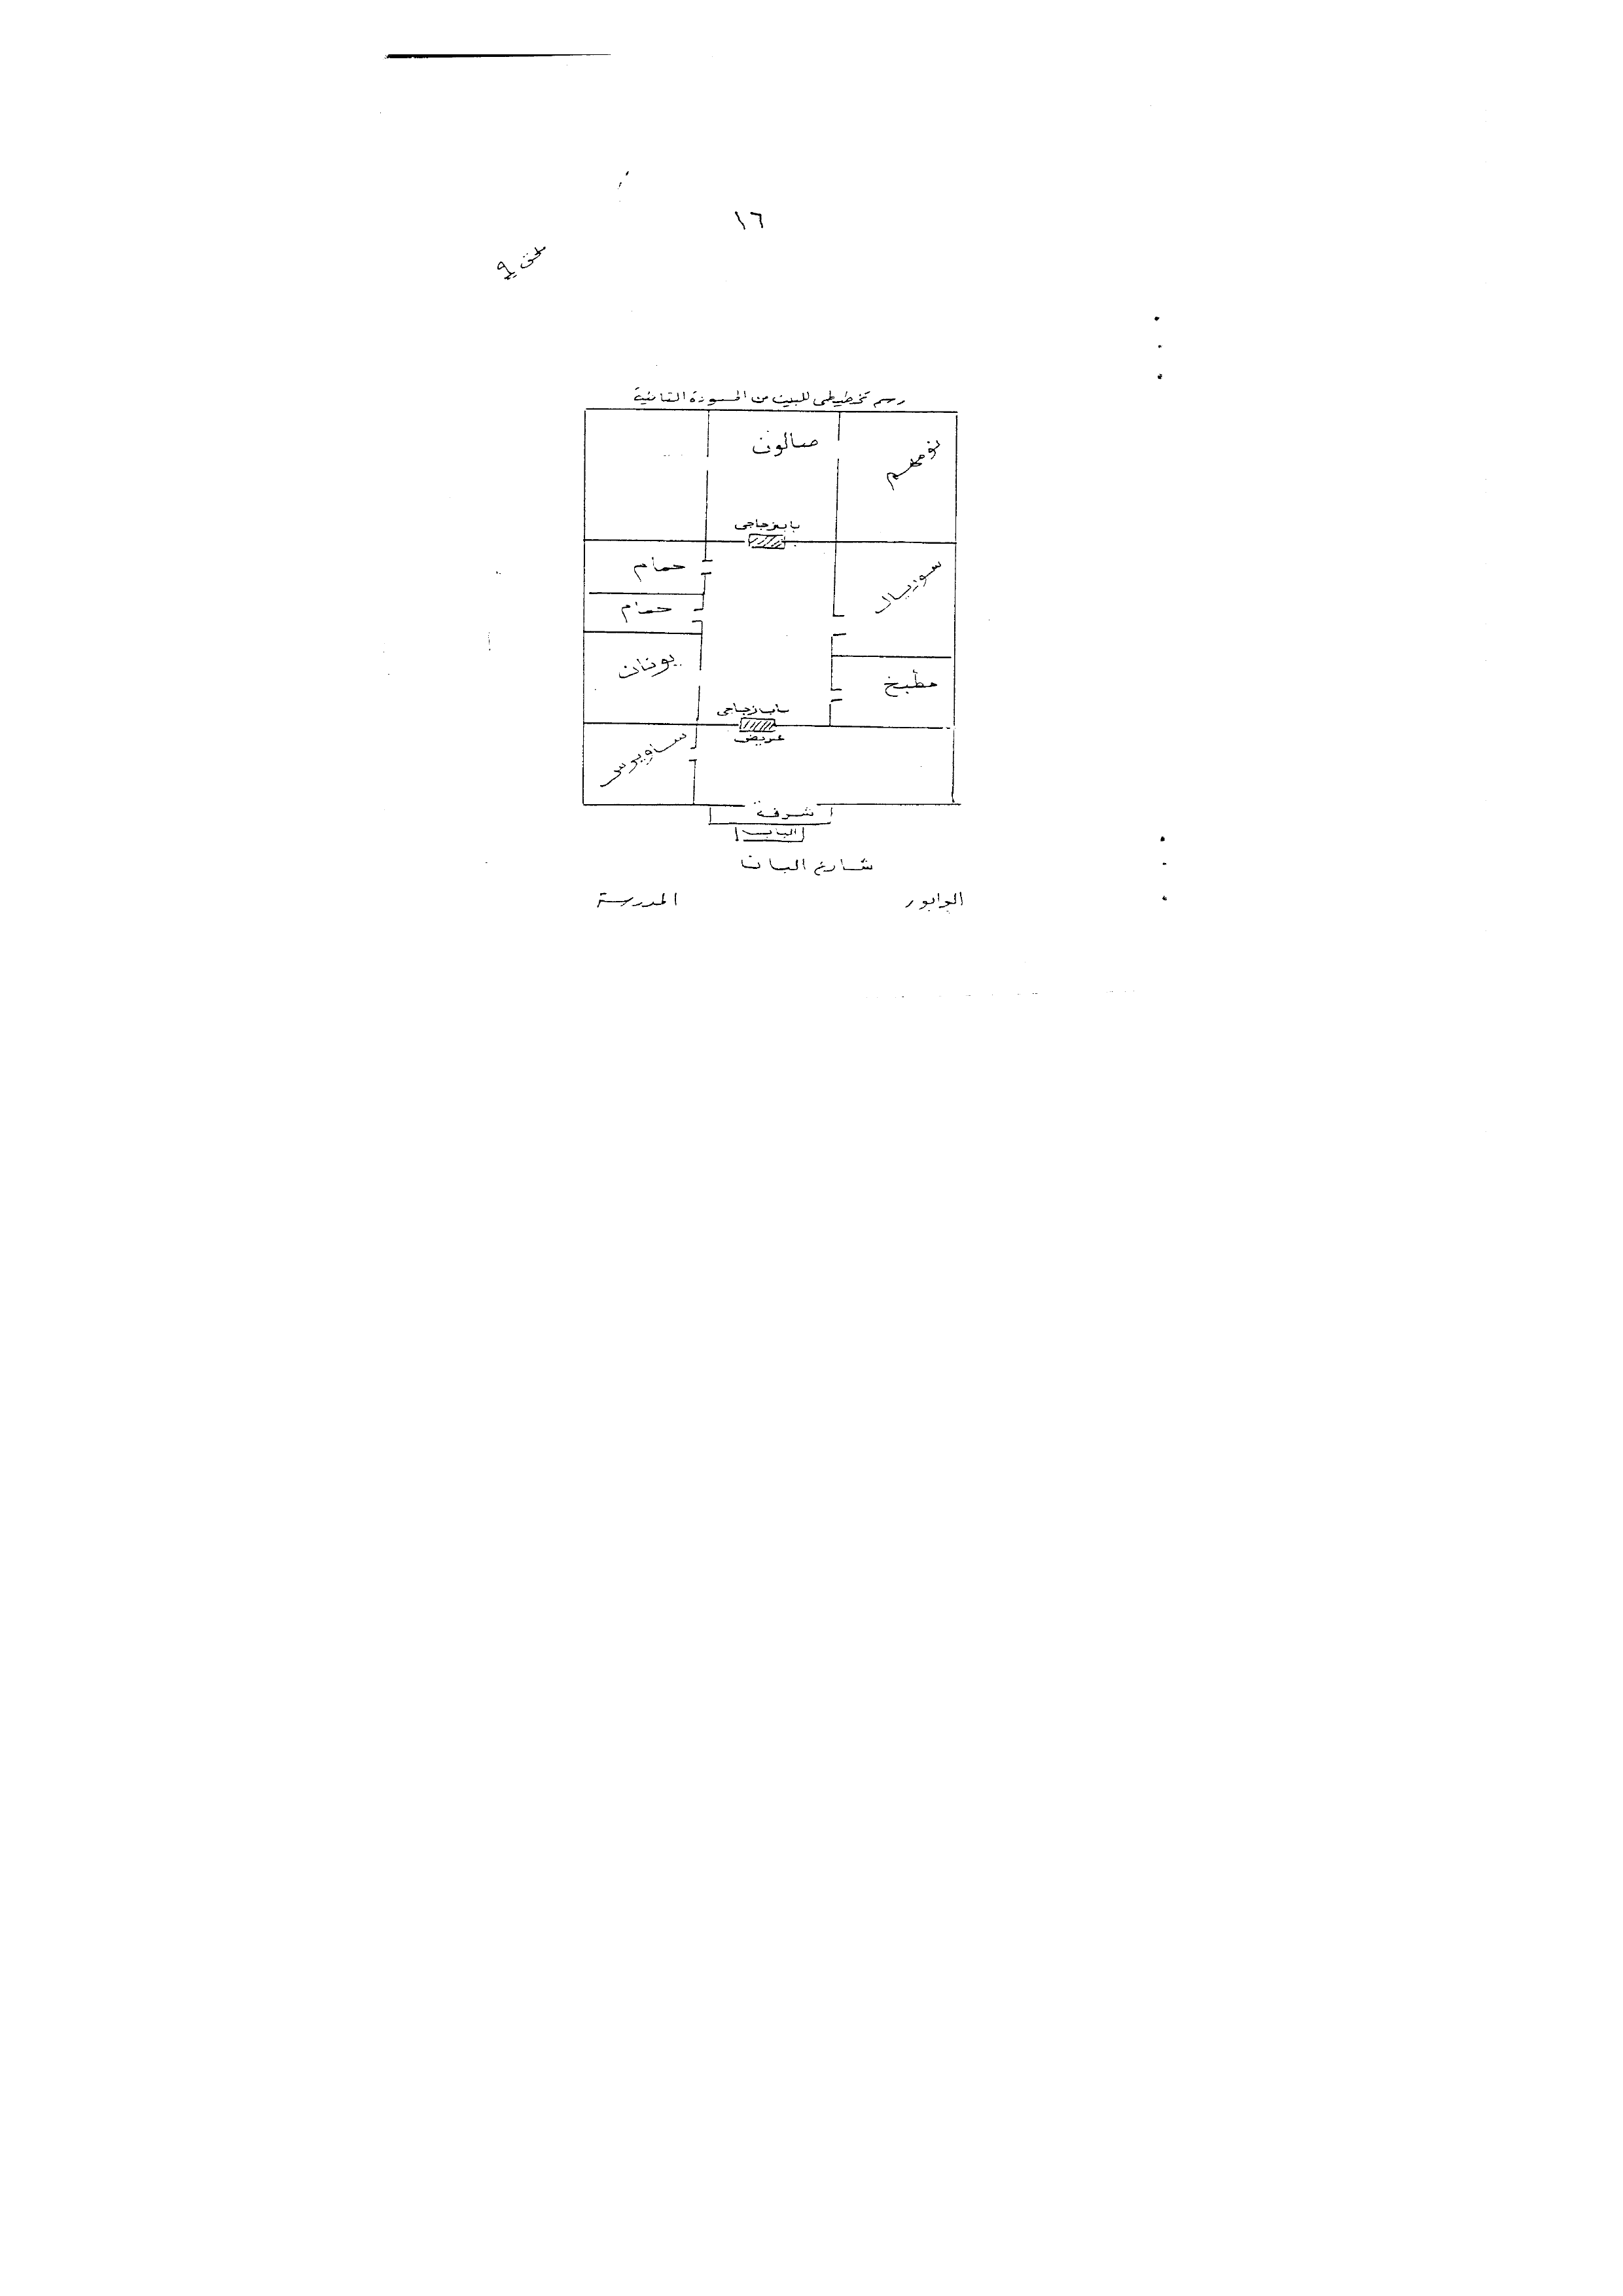 ١٦
ملحق
رسم تخطيطى للبيت من المسودة الثانية
صالون
نومهم
باب زجاجى
حمام
سوريال
حمام
يونان
مطبخ
باب زجاجى
عريض
ساويرس
شرفة
الباب
شارع البان
الوابور
المدرسة